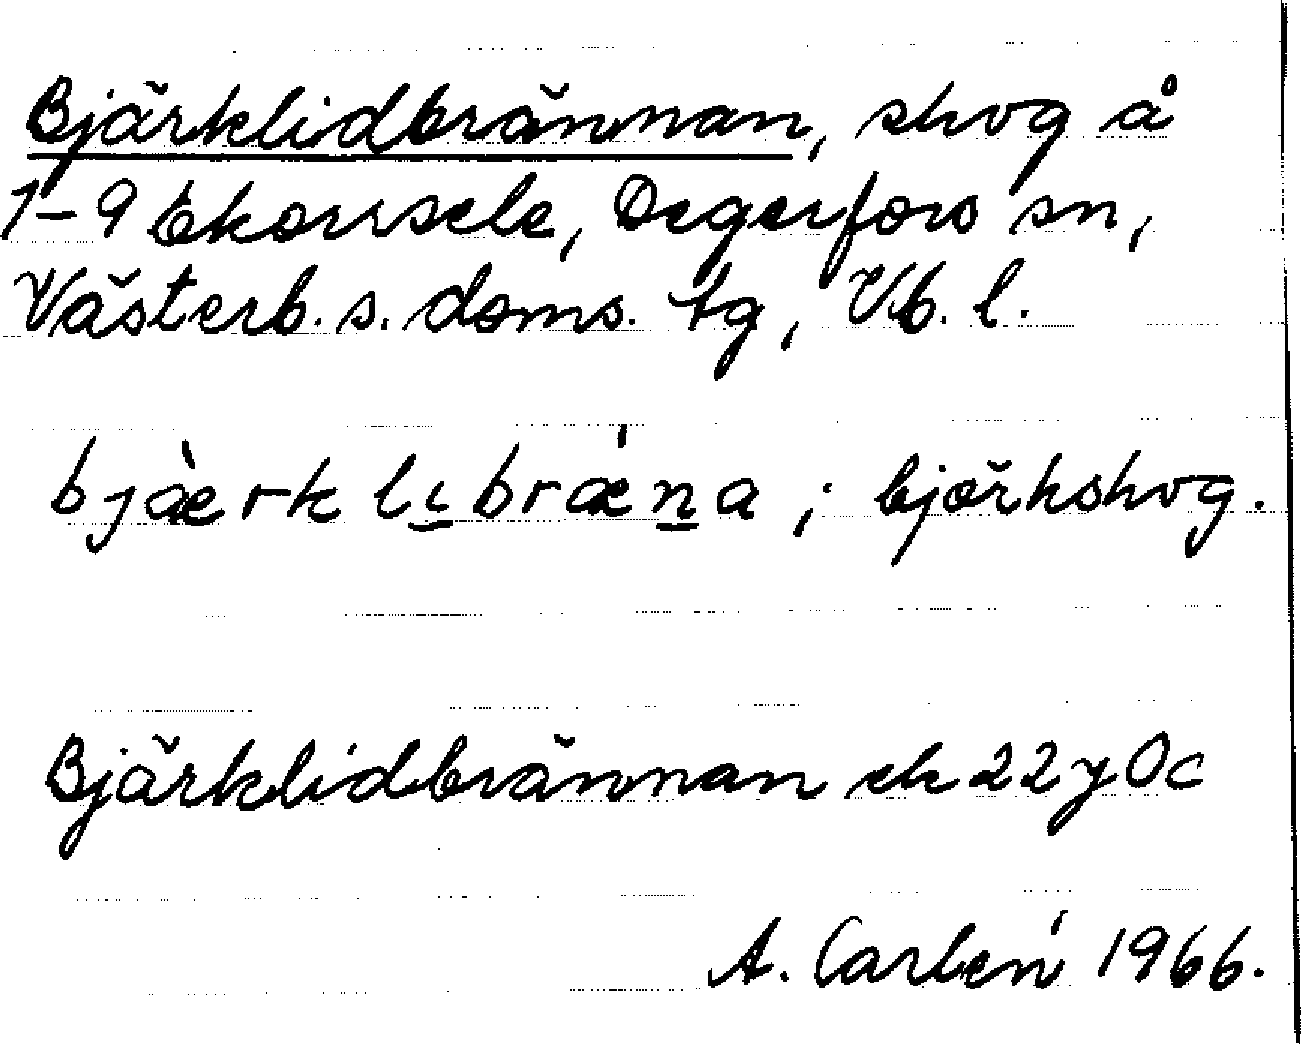 Bjärklidbrännan, skog å
1–9 Ekorrsele, Degerfors sn,
Västerb. s. doms. tg, Vb. l.
bjæ̀rklɩbrǽn̲a ; björkskog.
Bjärklidbrännan ek 22y0c
A. Carlén 1966.